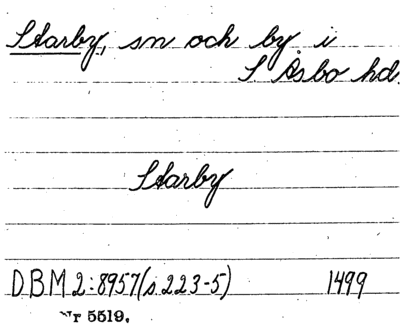 Starby, sn och by i
S Åsbo hd.
Starby
DBM 2:8957(s 223-5) 1499
Nr 5519,